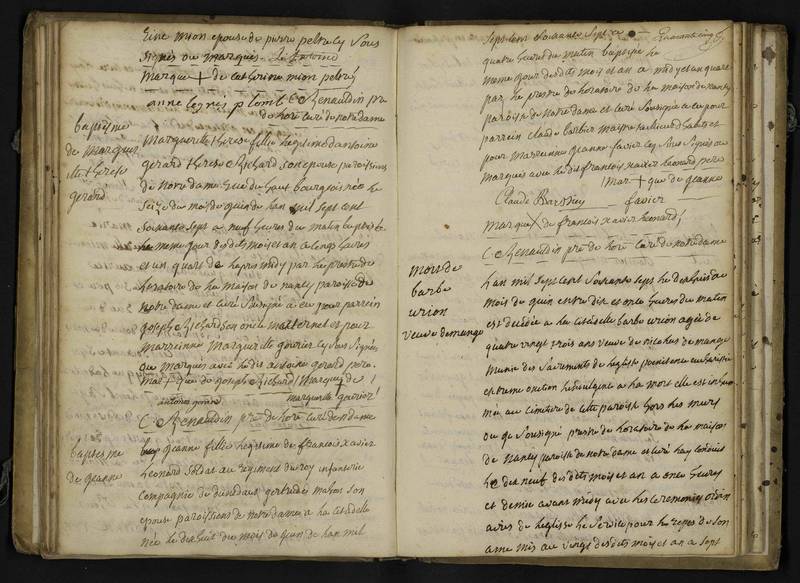 épouse de pierre pelerhy sous
signés ou marqués
marque + de catherine mion
C Renauldin pre
de lore curé de notre dame
baptisme
de marguer
itte therese
gerard
Marguerite therese fille legitime dantoine
gerard therese Richard son epouse paroissiens
de notre dame née le
Seize du mois de juin de lan mil sept cent
soixante sept a neuf heures du matin baptisée
le meme jour desdits mois et an a cinq heures
et un quart de lapres midy par le pretre de
loratoire de la maison de nancy paroisse de
notre dame et curé Soussigné a eu pour parrein
joseph Richard son oncle maternel et pour
marreinne Marguerite gouvier Sous Signés
ou marqués avec ledit antoine gerard pere
mar + que de joseph Richard Marque de
antoine gerard marguerite gouvier
C Renauldin pre de lore curé de n dame
baptesme
de jeanne
jeanne fille legitime de francois xavier
leonard soldat au regiment du roy infanterie
Compagnie de gertrude son
epouse paroissiens de notre dame a la citadelle
née le dix huit du mois de juin de lan mil
sept cent Soixante sept a
Quarante cinq
quatre heures du matin baptisée le
meme jour desdits mois et an a midy et un quart
par le pretre de loratoire de la maison de nancy
paroisse de notre dame et curé Sousigné a eu pour
parrein claude barbier maitre tailleur dhabits et
pour marreinne jeanne favier Sous Signés ou
marqués avec ledit francois xavier leonard pere
mar + que de jeanne
Claude Barbier favier
marque X de francois xavier leonard
C Renauldin pre de lore curé de notre dame
mort de
barbe
urion
veuve demange
Lan mil sept cent Soixante sept le dix huit du
mois de juin entre dix et onze heures du matin
est decedée a la citadelle barbe urion agée de
quatre vingt trois ans veuve de nicolas demange
munie des Sacrements de leglise penitence eucharistie
extreme onction indulgence a la mort elle est inhu
mée au cimetiere de cette paroisse hors les murs
ou je Soussigné pretre de loratoire de la maison
de nancy paroisse de notre dame et curé lay conduit
le dix neuf desdits mois et an a onze heures
et demie avant midy avec les ceremonies ordin
aires de leglise le service pour le repos de son
ame mis au vingt desdits mois et an a sept